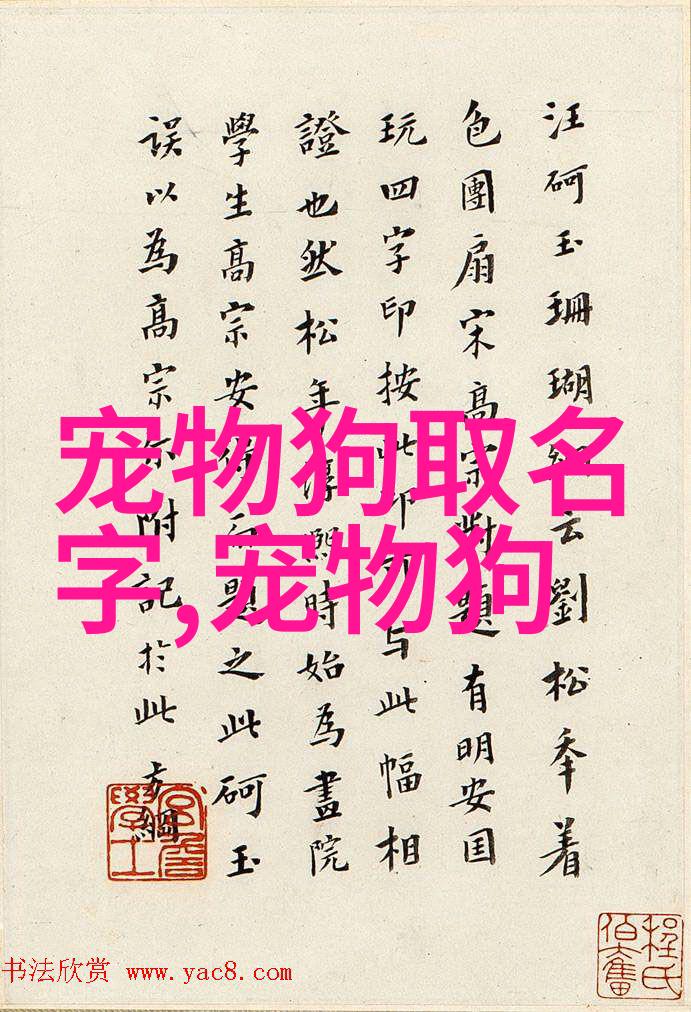 汪砢玉珊瑚網云劉松年着
色團扇宋高宗對題有明安国
玩四字印按此印可与此幅相
證也然松年淳熙時始為畫院
學生高宗安得而題之此砢玉
誤以為高宗尔附記於此方綱
宠物狗取名
字,宠物狗
书法欣赏 www.yac8.com